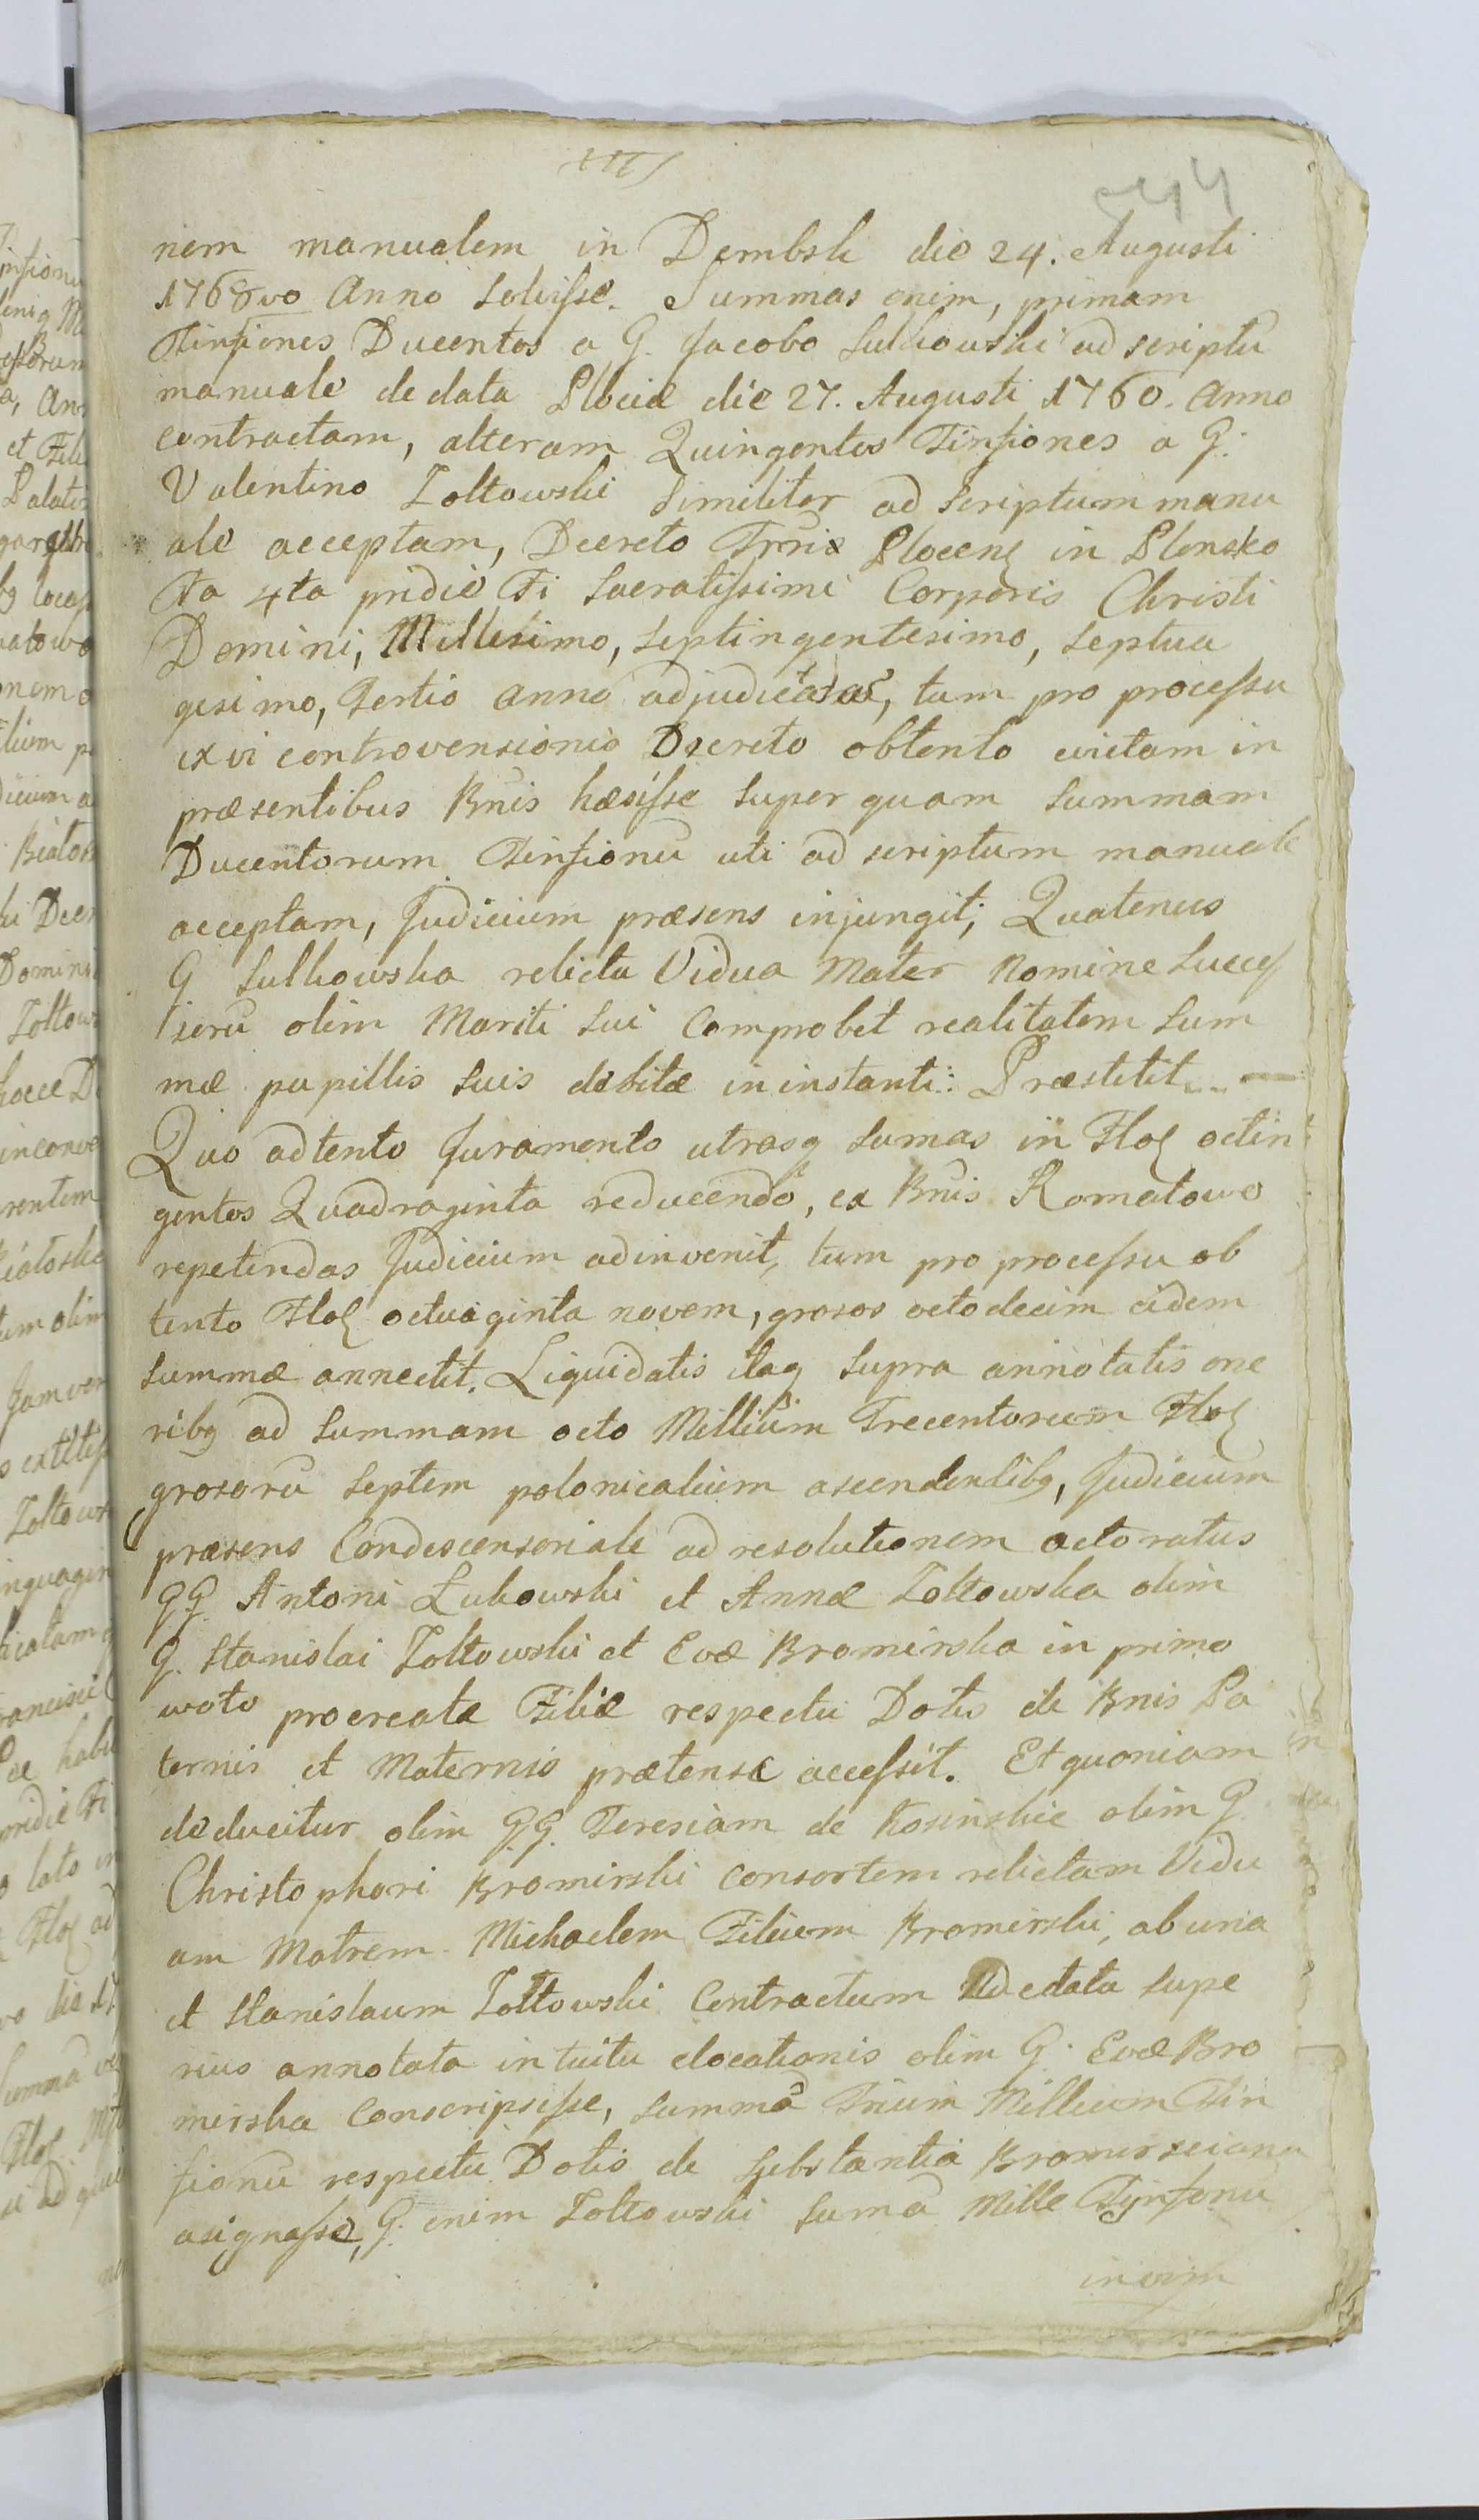 44
nem manualem in Dembsk die 24. Augusti
1768vo Anno solvisse. Summas enim, primam
Tinfiones Ducentos a G. Jacobo Sulkowski ad scriptũ
manuale de data Plociæ die 27. Augusti 1760. Anno
contractam, alteram Quingentos Tinfiones a G.
Valentino Zoltowski Similiter ad Scriptum manu
ale acceptam, Decreto Trriæ Plocens in Plonsko
Fa 4ta pridie Fi Sacratissimi Corporis Christi
Domini, Millesimo, Septingentesimo, Septua
gesimo, Tertio Anno adjudicatas, tum pro processu
ex vi controvensionis Decreto obtento evictam in
præsentibus Bnis hæsisse super quam Summam
Ducentorum Tinfionũ uti ad scriptum manuale
acceptam, Judicium præsens injungit; Quatenus
G Sulkowska relicta Vidua Mater Nomine Succes
sorũ olim Mariti Sui Comprobet realitatem Sum
mæ pupillis suis debitæ in instanti: Præstitit
Quo adtento Juramento utrasq sumas in Flos octin
gentos Quadraginta reducendo, ex Bnis Romatowo
repetendas Judicium adinvenit, tum pro processu ob
tento Flos octuaginta novem, grosos octodecim eidem
summæ annectit. Liquidatis itaq supra annotatis one
ribq ad Summam octo Millium Trecentorum Flos
grosorũ Septem polonicalium ascendentibq, Judicium
præsens Condescensoriale ad resolutionem actoratus
GG Antoni Łukowski et Annæ Zoltowska olim
G. Stanislai Zoltowski et Evæ Bromirska in primo
woto procreatæ Filiæ respectu Dotis de Bnis Pa
ternis et Maternis prætensæ accessit. Et quoniam
deducitur olim GG. Teresiam de Kosinskie olim G
Christophori Bromirski consortem relictam Vidu
am Matrem Michaelem Filium Bromirski, ab una
et Stanislaum Zoltowski Contractum de data supe
rius annotata intuitu elocationis olim G. Evæ Bro
mirska Conscripsisse, summã Trium Millium Tin
fionũ respectu Dotis de Substantia Bromirsciana
asignasse, G. enim Zoltowski Sumã Mille Tynfonũ
in vim